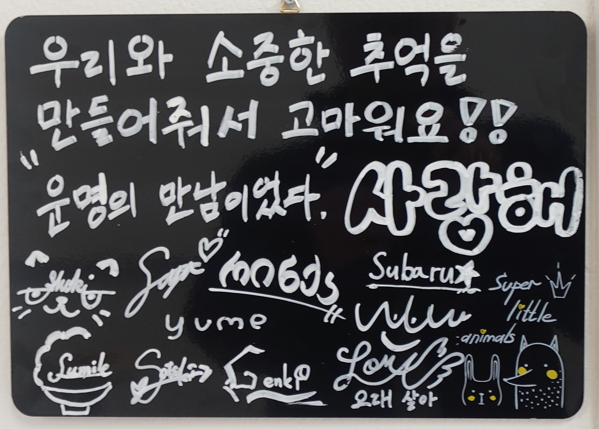 우리와 소중한 추억을
만들어줘서 고마워요!!
"운명의 만남이었다."
사랑해
Shoki
Subaru
Super
little
animals
yume
Sumile
Genki
오래 살아